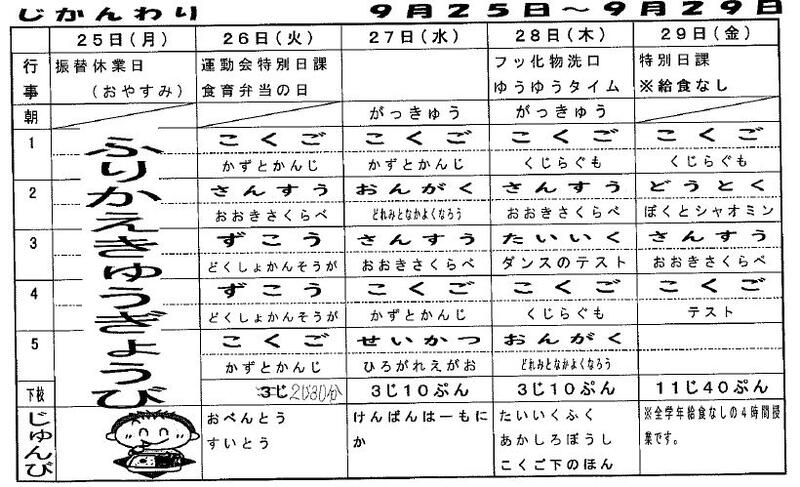 じかんわり　９月２５日～９月２９日
25日(月)　26日(火)　27日(水)　28日(木)　29日(金)
行事　振替休業日　運動会特別日課　フッ化物洗口　特別日課
（おやすみ）　食育弁当の日　ゆうゆうタイム　※給食なし
朝　がっきゅう　がっきゅう
ふりかえきゅうぎょうび
1　こくご　こくご　こくご　こくご
かずとかんじ　かずとかんじ　くじらぐも　くじらぐも
2　さんすう　おんがく　さんすう　どうとく
おおきさくらべ　どれみとなかよくなろう　おおきさくらべ　ぼくとシャオミン
3　ずこう　さんすう　たいいく　さんすう
どくしょかんそうが　おおきさくらべ　ダンスのテスト　おおきさくらべ
4　ずこう　こくご　こくご　こくご
どくしょかんそうが　かずとかんじ　くじらぐも　テスト
5　こくご　せいかつ　おんがく
かずとかんじ　ひろがれえがお　どれみとなかよくなろう
下校　3じ　2じ30分　3じ10ぷん　3じ10ぷん　11じ40ぷん
じゅんび　おべんとう　けんばんはーもに　たいいくふく　※全学年給食なしの４時間授
すいとう　か　あかしろぼうし　業です。
こくご下のほん